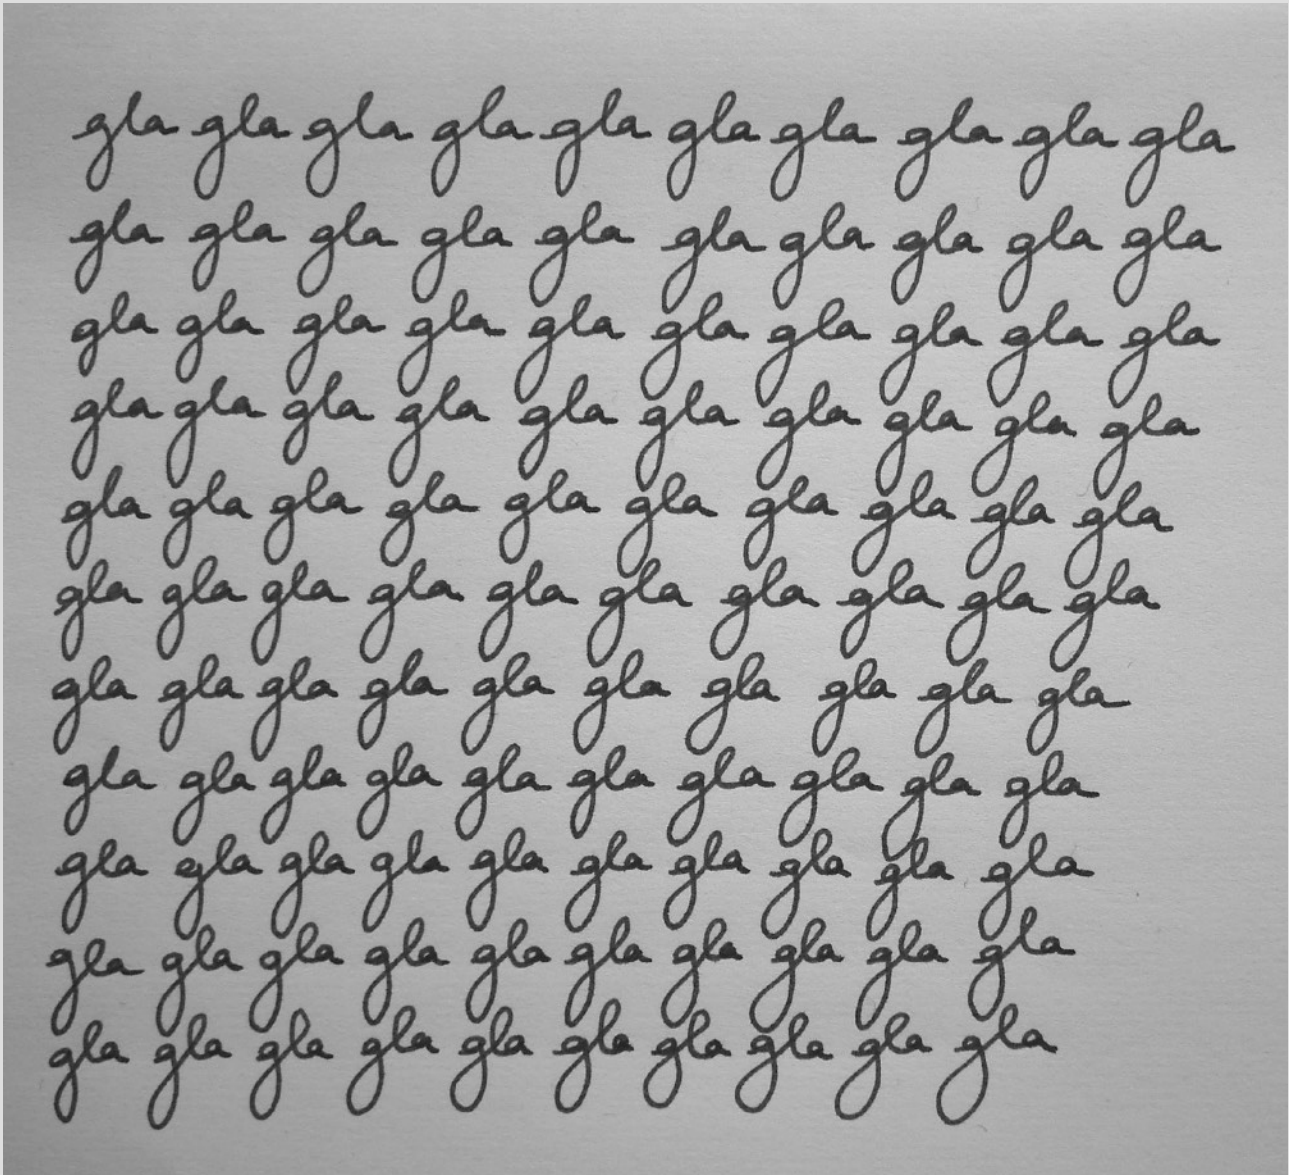 gla gla gla gla gla gla gla gla gla gla
gla gla gla gla gla gla gla gla gla gla
gla gla gla gla gla gla gla gla gla gla
gla gla gla gla gla gla gla gla gla gla
gla gla gla gla gla gla gla gla gla gla
gla gla gla gla gla gla gla gla gla gla
gla gla gla gla gla gla gla gla gla gla
gla gla gla gla gla gla gla gla gla gla
gla gla gla gla gla gla gla gla gla gla
gla gla gla gla gla gla gla gla gla gla
gla gla gla gla gla gla gla gla gla gla